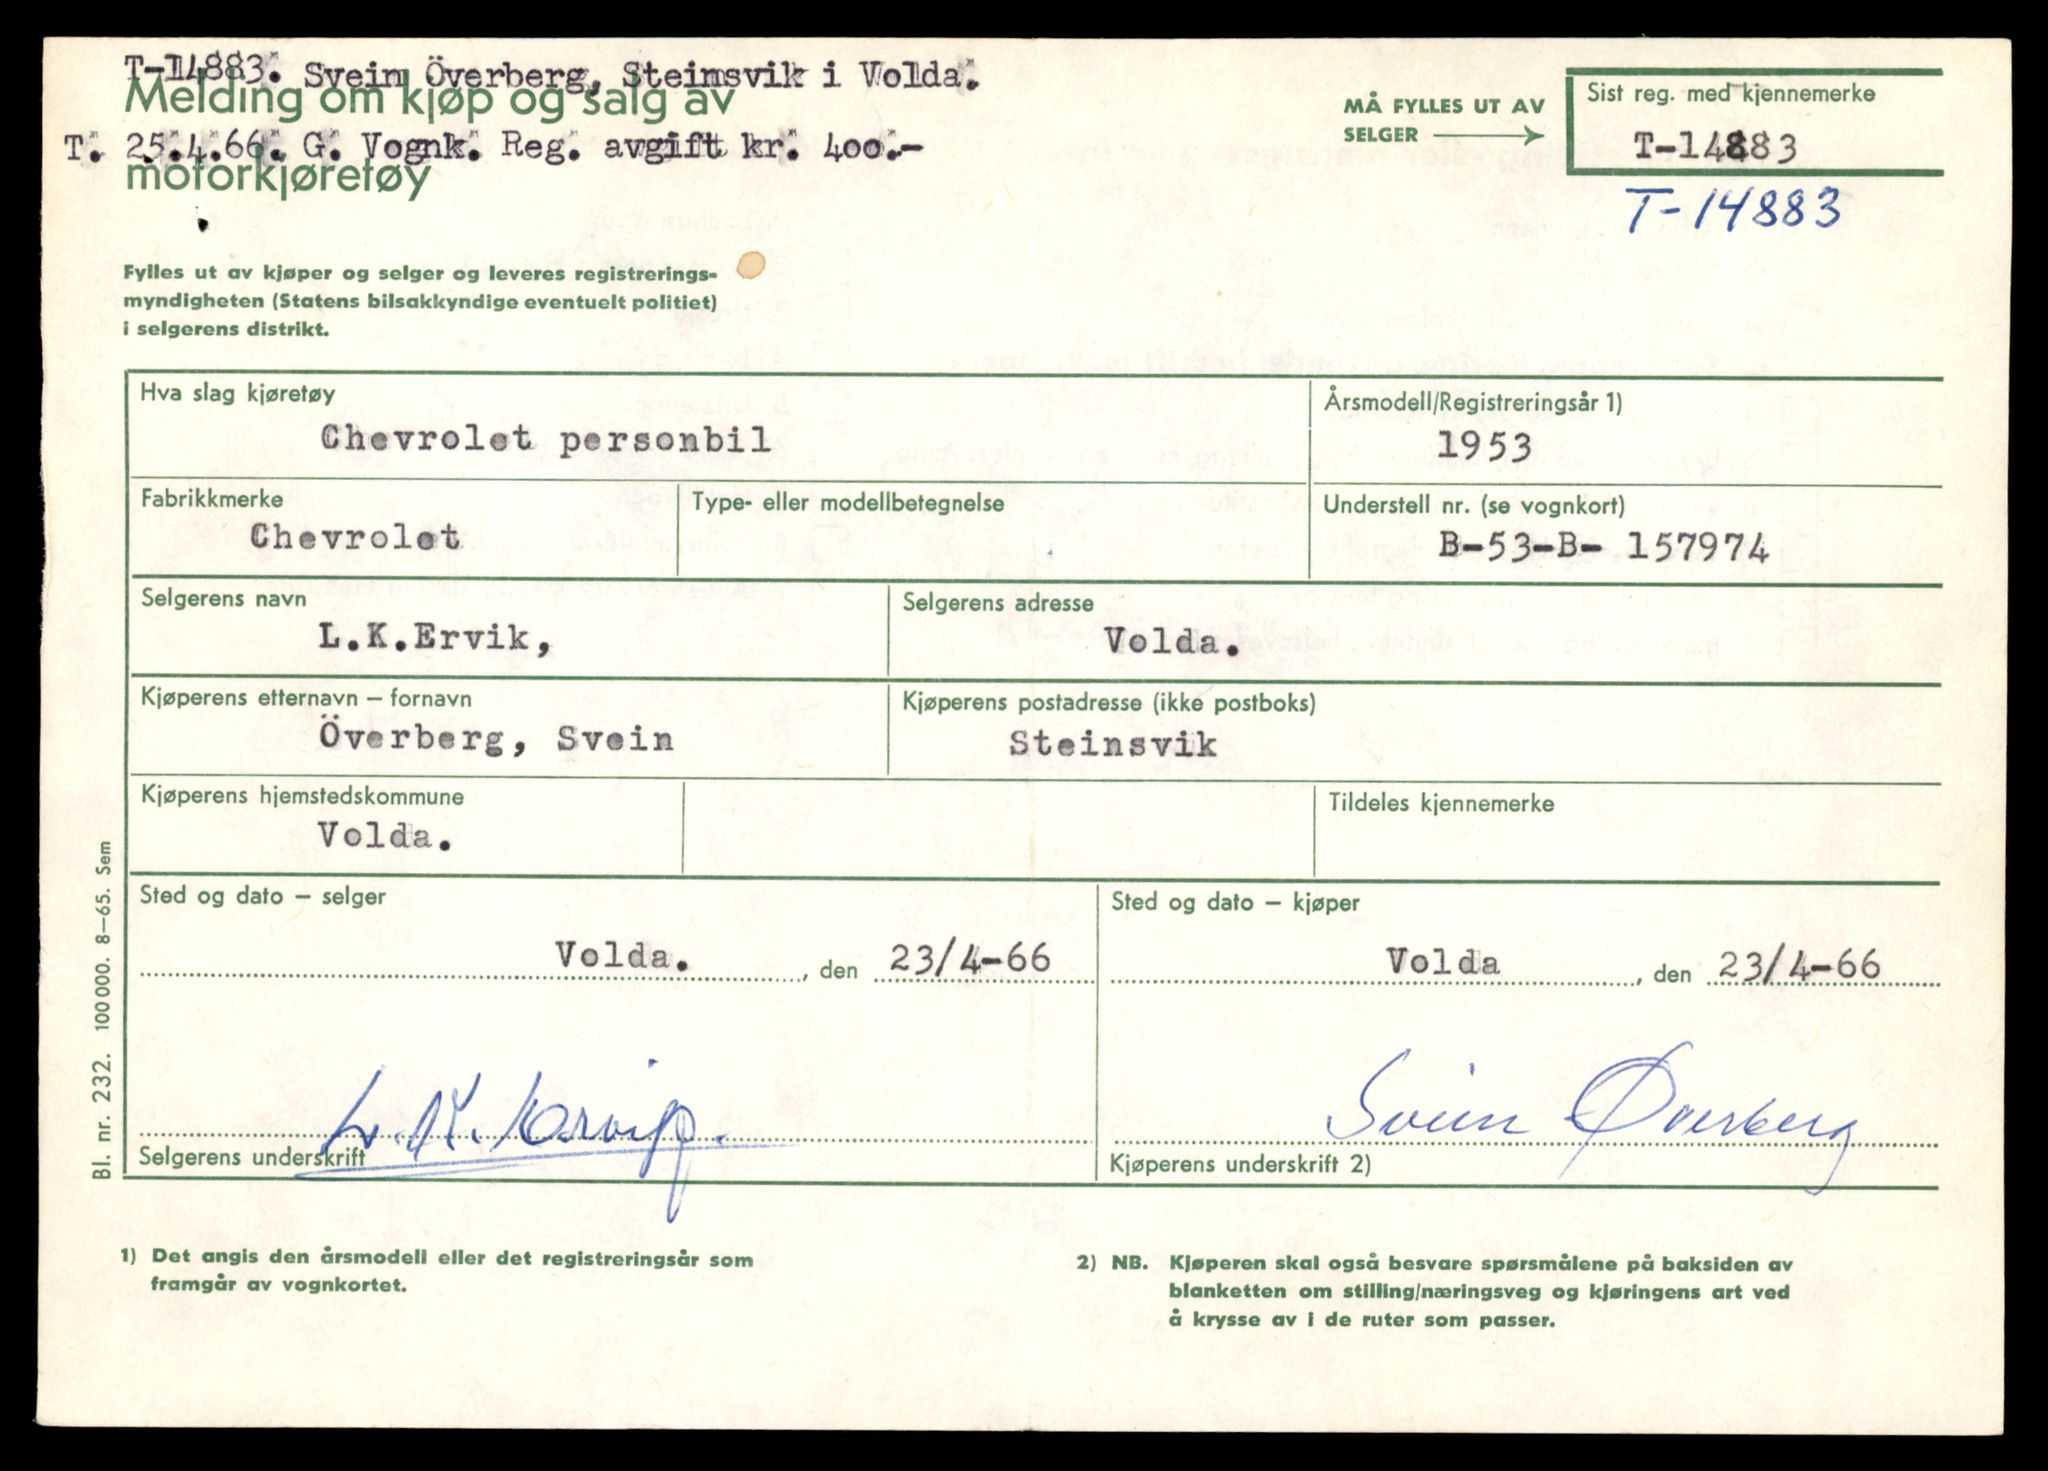 T-14883. Svein Överberg, Steinsvik i Volda.
Melding om kjøp og salg av
T. 25.4.66. G. Vognk. Reg. avgift kr. 400.-
motorkjøretøy
MÅ FYLLES UT AV
SELGER
Sist reg. med kjennemerke
T-14883
T-14883
Fylles ut av kjøper og selger og leveres registrerings-
myndigheten (Statens bilsakkyndige eventuelt politiet)
i selgerens distrikt.
Hva slag kjøretøy
Chevrolet personbil
Årsmodell/Registreringsår 1)
1953
Fabrikkmerke
Chevrolet
Type- eller modellbetegnelse
Understell nr. (se vognkort)
B-53-B- 157974
Selgerens navn
L.K.Ervik,
Selgerens adresse
Volda.
Kjøperens etternavn – fornavn
Överberg, Svein
Kjøperens postadresse (ikke postboks)
Steinsvik
Kjøperens hjemstedskommune
Volda.
Tildeles kjennemerke
Sted og dato – selger
Volda. , den 23/4-66
Sted og dato – kjøper
Volda , den 23/4-66
L. K. Ervik.
Selgerens underskrift
Svein Øverberg
Kjøperens underskrift 2)
Bl. nr. 232. 100 000. 8–65. Sem
1) Det angis den årsmodell eller det registreringsår som
framgår av vognkortet.
2) NB. Kjøperen skal også besvare spørsmålene på baksiden av
blanketten om stilling/næringsveg og kjøringens art ved
å krysse av i de ruter som passer.